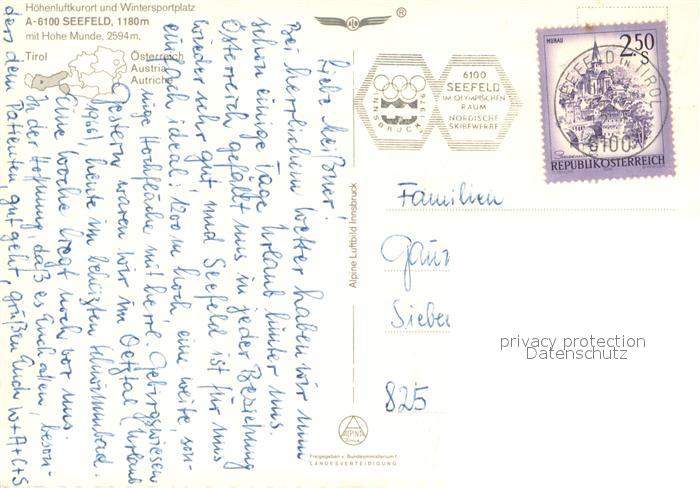 Höhenluftkurort und Wintersportplatz
A-6100 SEEFELD, 1180m
mit Hohe Munde, 2594m.
Tirol
Österreich
Austria
Autriche
®
INNSBRUCK 1976
6100
SEEFELD
IM OLYMPISCHEN
RAUM
NORDISCHE
SKIBEWERBE
MURAU
2.50
S
SEEFELD IN TIROL
6100
REPUBLIK ÖSTERREICH
Liebe Meißner!
Bei herrlichem Wetter haben wir nun
schon einige Tage Urlaub hinter uns.
Österreich gefällt uns in jeder Beziehung
wieder sehr gut und Seefeld ist für uns
einfach ideal: 1200 m hoch, eine weite, son-
nige Hochfläche mit herrl. Gebirgswiesen
Gestern waren wir im Oetztal (Urlaub
1966), heute im beheizten Schwimmbad.
Eine Woche liegt noch vor uns.
In der Hoffnung, daß es Euch allen, beson-
ders dem Patienten, gut geht, grüßen Euch W+A+C+S
Alpine Luftbild Innsbruck
ALPINA
Freigegeben v. Bundesministerium f.
LANDESVERTEIDIGUNG
Familien
Gaur
Sieber
825
privacy protection
Datenschutz